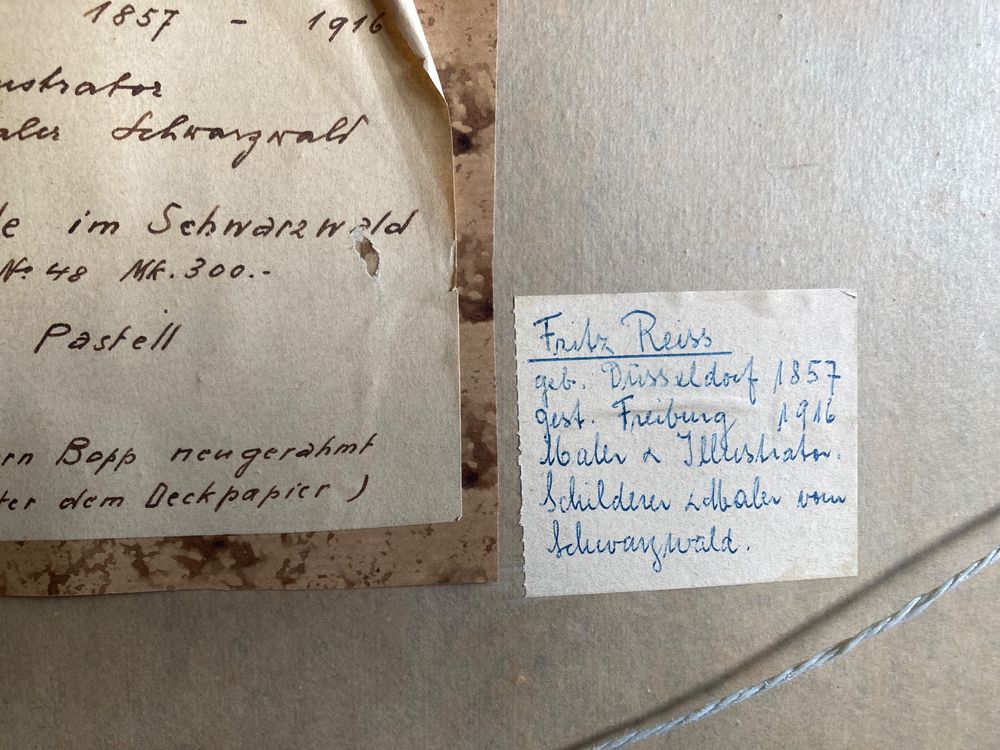 1857 - 1916
ustrator
aler Schwarzwald
le im Schwarzwald
No 48 Mk. 300.-
Pastell
rn Bopp neugerahmt
ter dem Deckpapier )
Fritz Reiss
geb. Düsseldorf 1857
gest. Freiburg 1916
Maler & Illustrator.
Schilderer & Maler vom
Schwarzwald.